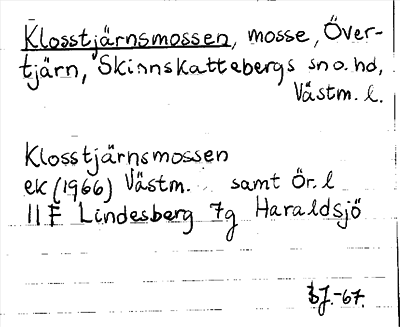 Klosstjärnsmossen, mosse, Över-
tjärn, Skinnskattebergs sn o. hd,
Västm. l.
Klosstjärnsmossen
ek (1966) Västm. samt Ör. l
11 F Lindesberg 7g Haraldsjö
BJ.-67.